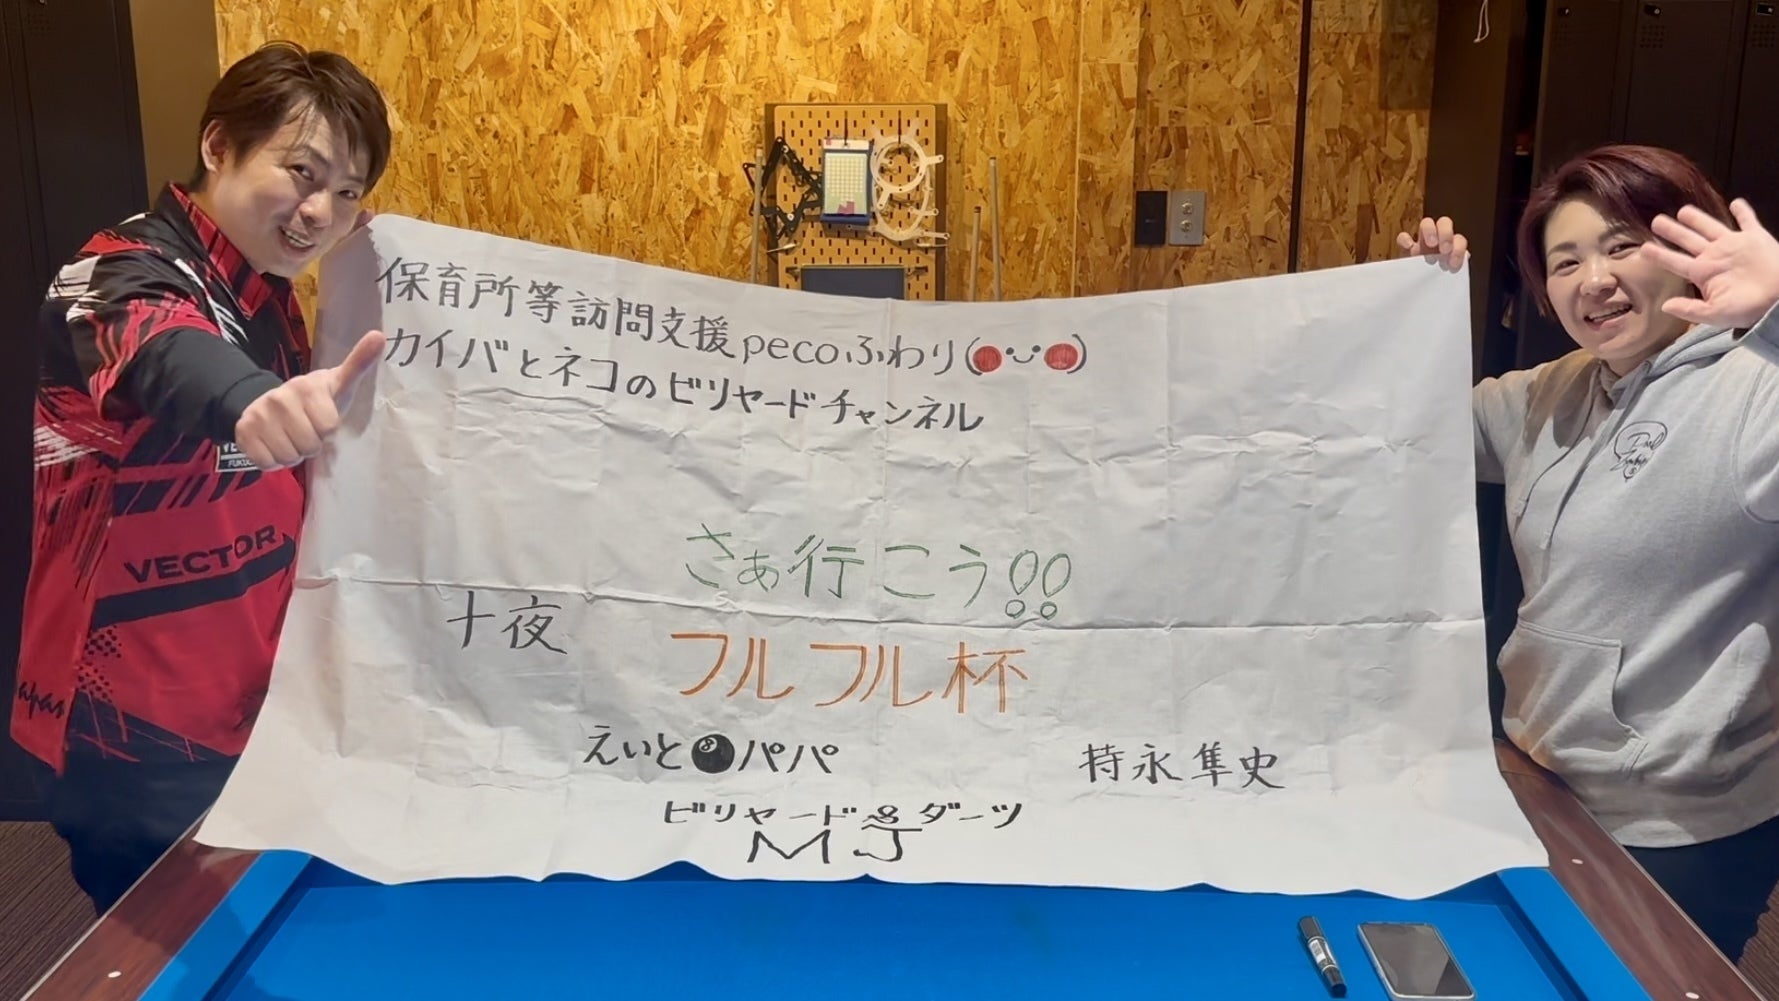 保育所等訪問支援pecoふわり(●・ᴗ・●)
カイバとネコのビリヤードチャンネル
さあ行こう!!
十夜
フルフル杯
えいと8パパ
持永隼史
ビリヤード&ダーツ
MJ
VECTOR